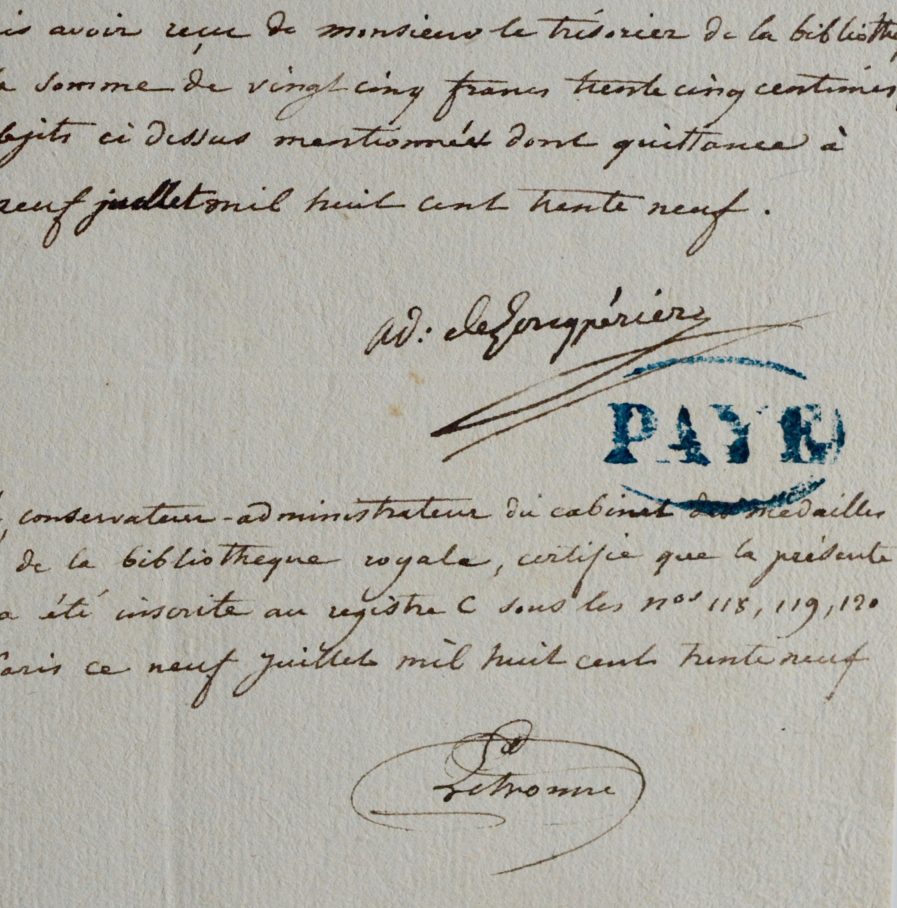 is avoir reçu de monsieur le trésorier de la biblioth
somme de vingt cinq francs trente cinq centimes
bjits ci dessus mentionnés dont quittance à
neuf juillet mil huit cent trente neuf.
ad: de Longpérier
PAYÉ
conservateur-administrateur du cabinet des médailles
de la bibliotheque royale, certifie que la présente
a été inscrite au registre C sous les nos 118, 119, 120
Paris ce neuf juillet mil huit cent trente neuf
Letronne